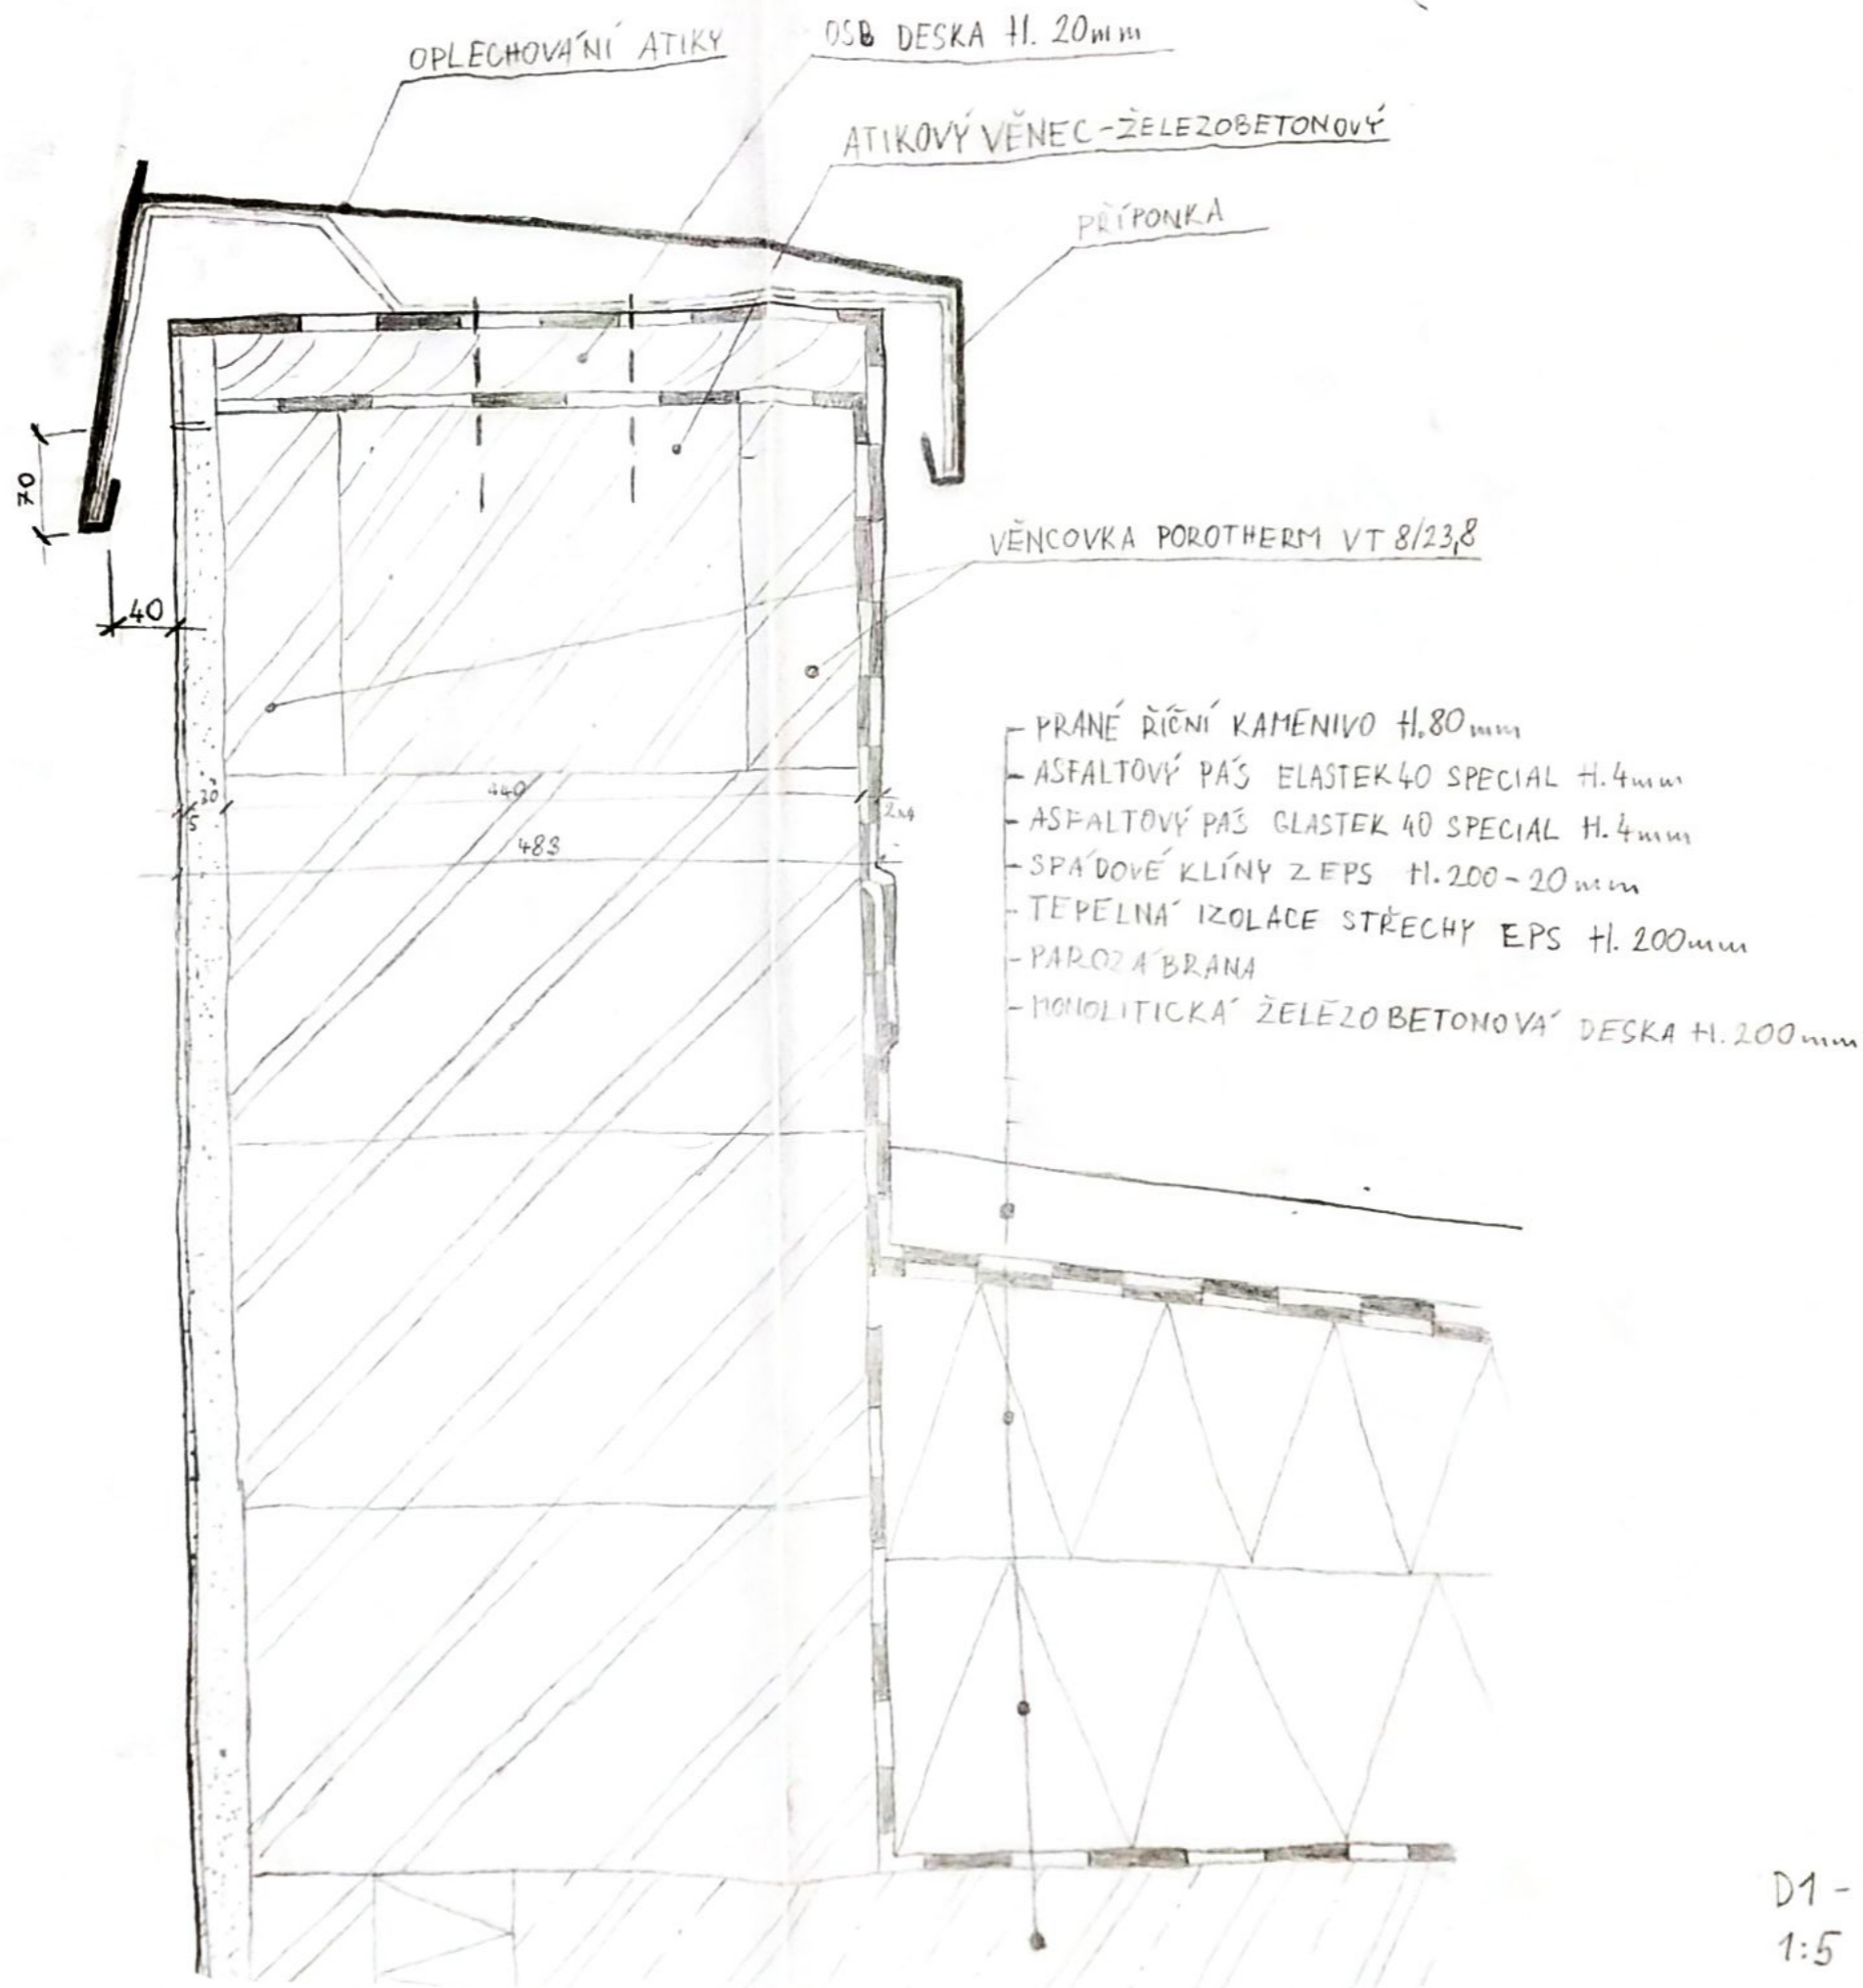 OPLECHOVÁNÍ ATIKY
OSB DESKA tl. 20mm
ATIKOVÝ VĚNEC-ŽELEZOBETONOVÝ
PŘÍPONKA
70
40
VĚNCOVKA POROTHERM VT 8/23,8
PRANÉ ŘÍČNÍ KAMENIVO tl.80mm
- ASFALTOVÝ PÁS ELASTEK 40 SPECIAL tl.4mm
- ASFALTOVÝ PÁS GLASTEK 40 SPECIAL tl.4mm
- SPÁDOVÉ KLÍNY Z EPS tl.200-20mm
- TEPELNÁ IZOLACE STŘECHY EPS tl.200mm
- PAROZÁBRANA
- MONOLITICKÁ ŽELEZOBETONOVÁ DESKA tl.200mm
30
5
440
2x4
483
D1 -
1:5